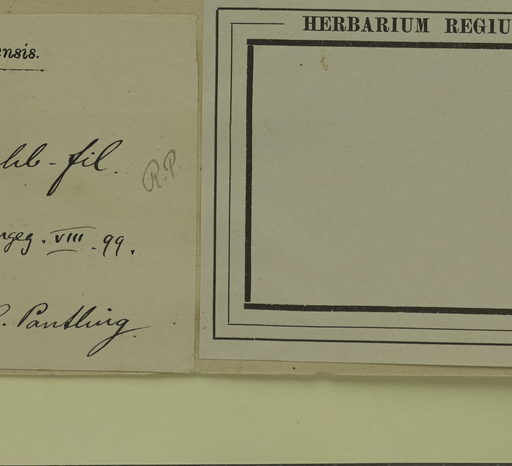 ensis.
hb-fil.
R.P.
. VIII . 99.
. Pantling
HERBARIUM REGIU